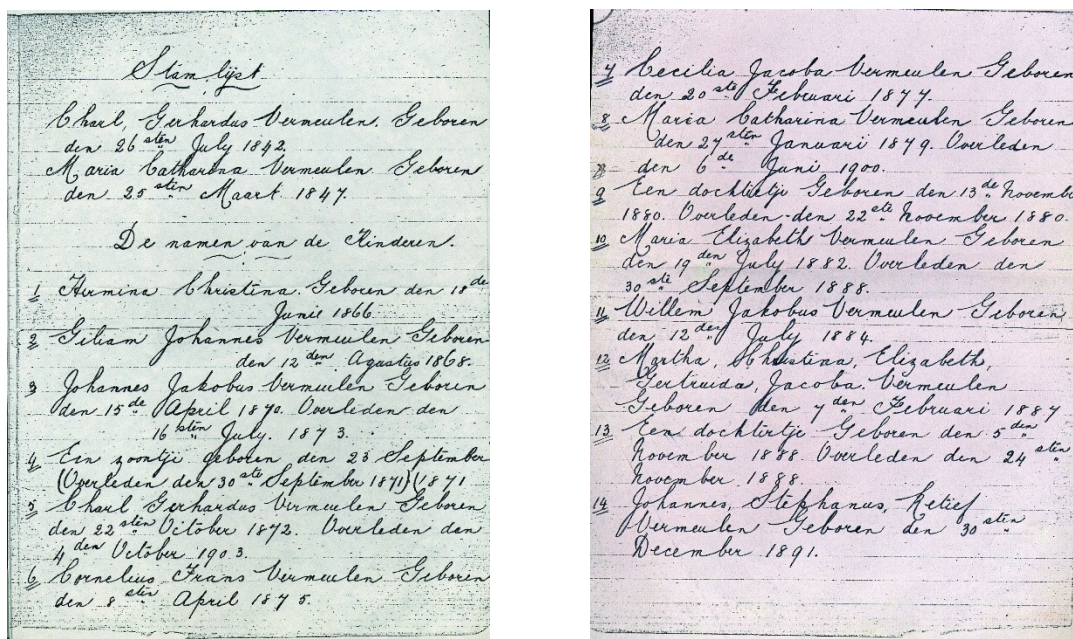 Stam lijst
Charl, Gerhardus Vermeulen. Geboren
den 26 sten July 1842.
Maria Catharina Vermeulen. Geboren
den 25 sten Maart. 1847.
De namen van de Kinderen.
1 Hermina Christina. Geboren den 18 de
Junie 1866
2 Giliam Johannes Vermeulen Geboren
den 12 den Agustus 1868.
3 Johannes Jakobus Vermeulen Geboren
den 15 de April 1870. Overleden den
16 sten July. 1873.
4 Een zoontji geboren den 23 September
(Overleden den 30 ste September 1871) (1871
5 Charl Gerhardus Vermeulen Geboren
den 22 sten October 1872. Overleden den
4 den October 1903.
6 Cornelius Frans Vermeulen Geboren
den 8 sten April 1875.
7 Cecilia Jacoba Vermeulen Geboren
den 20 ste Februari 1877.
8 Maria Catharina Vermeulen Geboren
den 27 sten Januari 1879. Overleden
den 6 de Juni 1900.
9 Een dochtertje Geboren den 13 de November
1880. Overleden den 22 ste November 1880.
10 Maria Elizabeth Vermeulen Geboren
den 19 den July 1882. Overleden den
30 ste September 1888.
11 Willem Jakobus Vermeulen Geboren
den 12 den July 1884.
12 Martha, Christina, Elizabeth,
Gertruida, Jacoba. Vermeulen
Geboren den 7 den Februari 1887
13 Een dochtirtje Geboren den 5 den
November 1888. Overleden den 24 sten
November 1888.
14 Johannes, Stephanus, Retief
Vermeulen Geboren den 30 sten
December 1891.